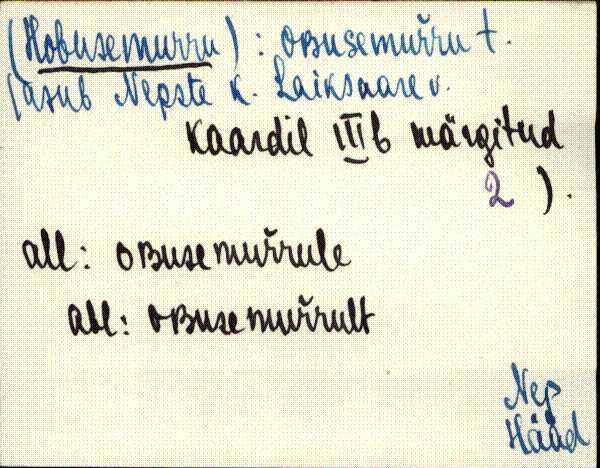 (Hobusemurru) : oʙusemuřřu t.
(asub Nepste k. Laiksaare v.
kaardil IIIb märgitud
2 ).
all: oʙusemuřřule
abl: oʙusemuřřult
Nep
Hääd